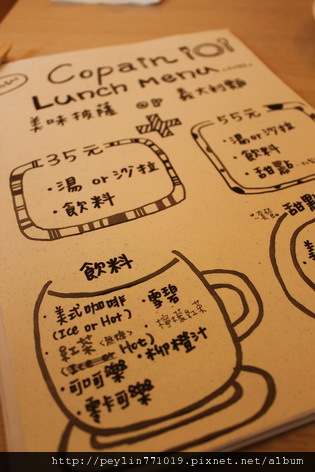 Copain 101
Lunch Menu
美味披薩 or 義大利麵
35元
・湯 or 沙拉
・飲料
55元
・湯 or 沙拉
・飲料
・甜點
飲料
・美式咖啡
(Ice or Hot)
・紅茶(無糖)
(Ice or Hot)
・可口可樂
・零卡可樂
・雪碧
・檸檬紅茶
・柳橙汁
甜點
http://peylin771019.pixnet.net/album